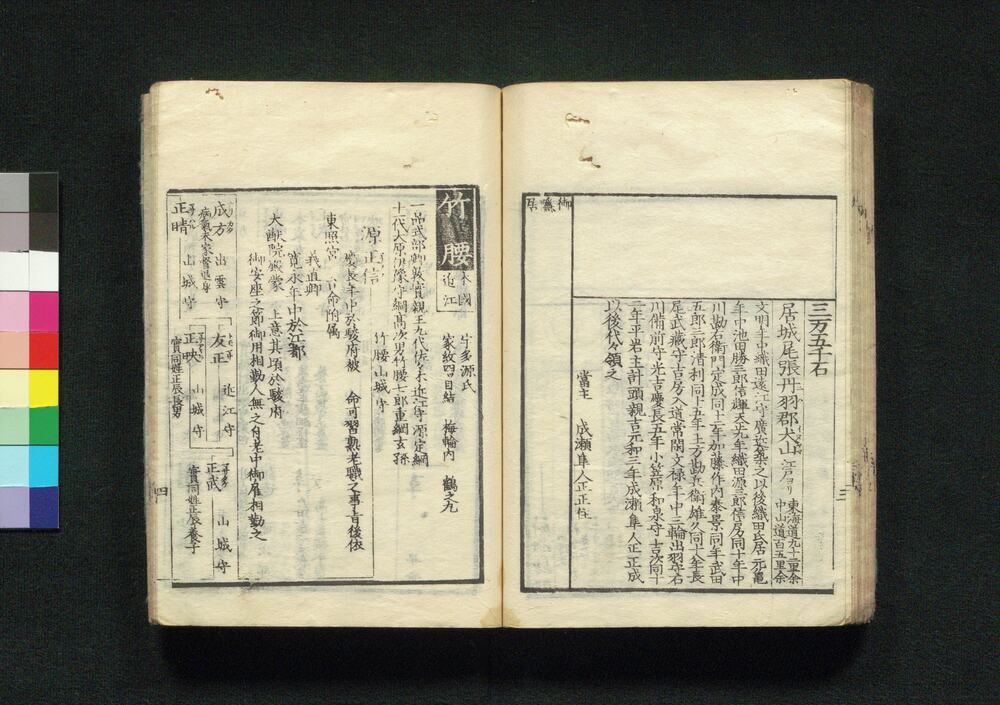 三万五千石
居城尾張丹羽郡犬山 江戸ヨリ 東海道九十二里余 中山道百五里余
文明年中織田遠江守廣近築之以後織田氏居 元亀
年中池田勝三郎信輝天正九年織田源三郎信房同十年中
川勘右衛門定成同十二年加藤作内泰景同年武田
五郎三郎清利同十五年土方勘兵衛雄久同十八年長
尾武藏守吉房入道常閑文禄年中三輪出羽守石
川備前守光吉慶長五年小笠原和泉守吉次同十
二年平岩主計頭親吉元和三年成瀬隼人正正成
以後代々領之
當主 成瀬隼人正正住
三
竹腰
本國 近江
宇多源氏
家紋 四目結 梅輪内 鶴之丸
一品式部卿敦實親王九代佐々木近江守源定綱
十一代大原伊豫守綱高次男竹腰七郎重綱玄孫
源正信 竹腰山城守
慶長年中於駿府被 命可習熟老職之事旨後依
東照宮 台命附属
義直卿
寛永年中於江都
大猷院殿蒙 上意其頃於駿府
御安座之節御用相勤人無之自老中御雇相勤之
成方 出雲守
病氣未家督退身
正晴 山城守
友正 近江守
正映 山城守
實同姓正辰長男
正武 山城守
實同姓正辰養子
四